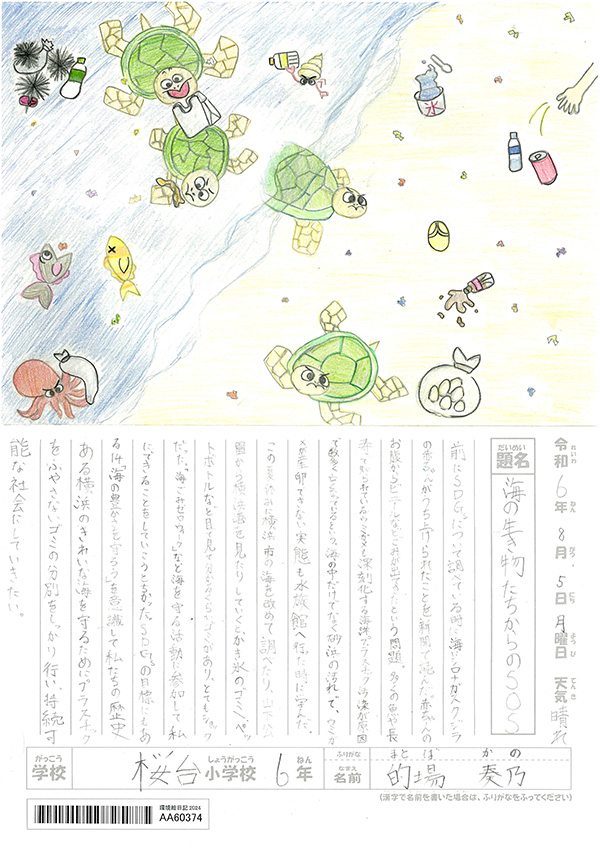 氷
令和6年8月5日月曜日 天気 晴れ
れいわ ねん がつ にち ようび てんき
だいめい
題名 海の生き物たちからのSOS
前にSDGsについて調べている時に海にシロナガスクジラ
の赤ちゃんがうち上げられたことを新聞で読んだ。赤ちゃんの
お腹からビニールなどごみが出てきたという問題。多くの魚や
深刻化する海洋プラスチック汚染が原因
で数多く亡くなっているという。海の中だけでなく砂浜の汚れで、ウミガ
メが産卵できない実態も水族館へ行った時に学んだ。
この夏休みに横浜市の海を改めて調べたり、山下公
園から横浜港を見たりしていくとかき氷のゴミ、ペッ
トボトルなど目で見て分かるくらいゴミがあり、とてもショック
だった。「海ごみゼロ」など海を守る活動に参加して私
にできることをしていこうと SDGsの目標にもあ
る14「海の豊かさを守ろう」を意識して私たちの歴史
ある横浜のきれいな海を守るためにプラスチック
をふやさないゴミの分別をしっかり行い、持続可
能な社会にしていきたい。
がっこう しょうがっこう ねん ふりがな まと ば か の
学校 桜台小学校 6年 なまえ 名前 的場 奏乃
(漢字で名前を書いた場合は、ふりがなをふってください)
環境絵日記2024
AA60374